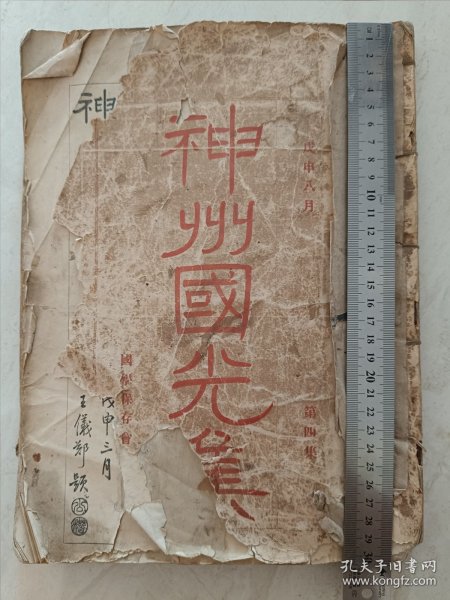 戊申八月
第四集
神州國光集
國學保存會
神
戊申三月
王儀鄭題
1 2 3 4 5 6 7 8 9 10 11 12 13 14 15 16 17 18 19 20 21 22 23 24 25 26 27 28 29 30
孔夫子旧书网
www.kongfz.com